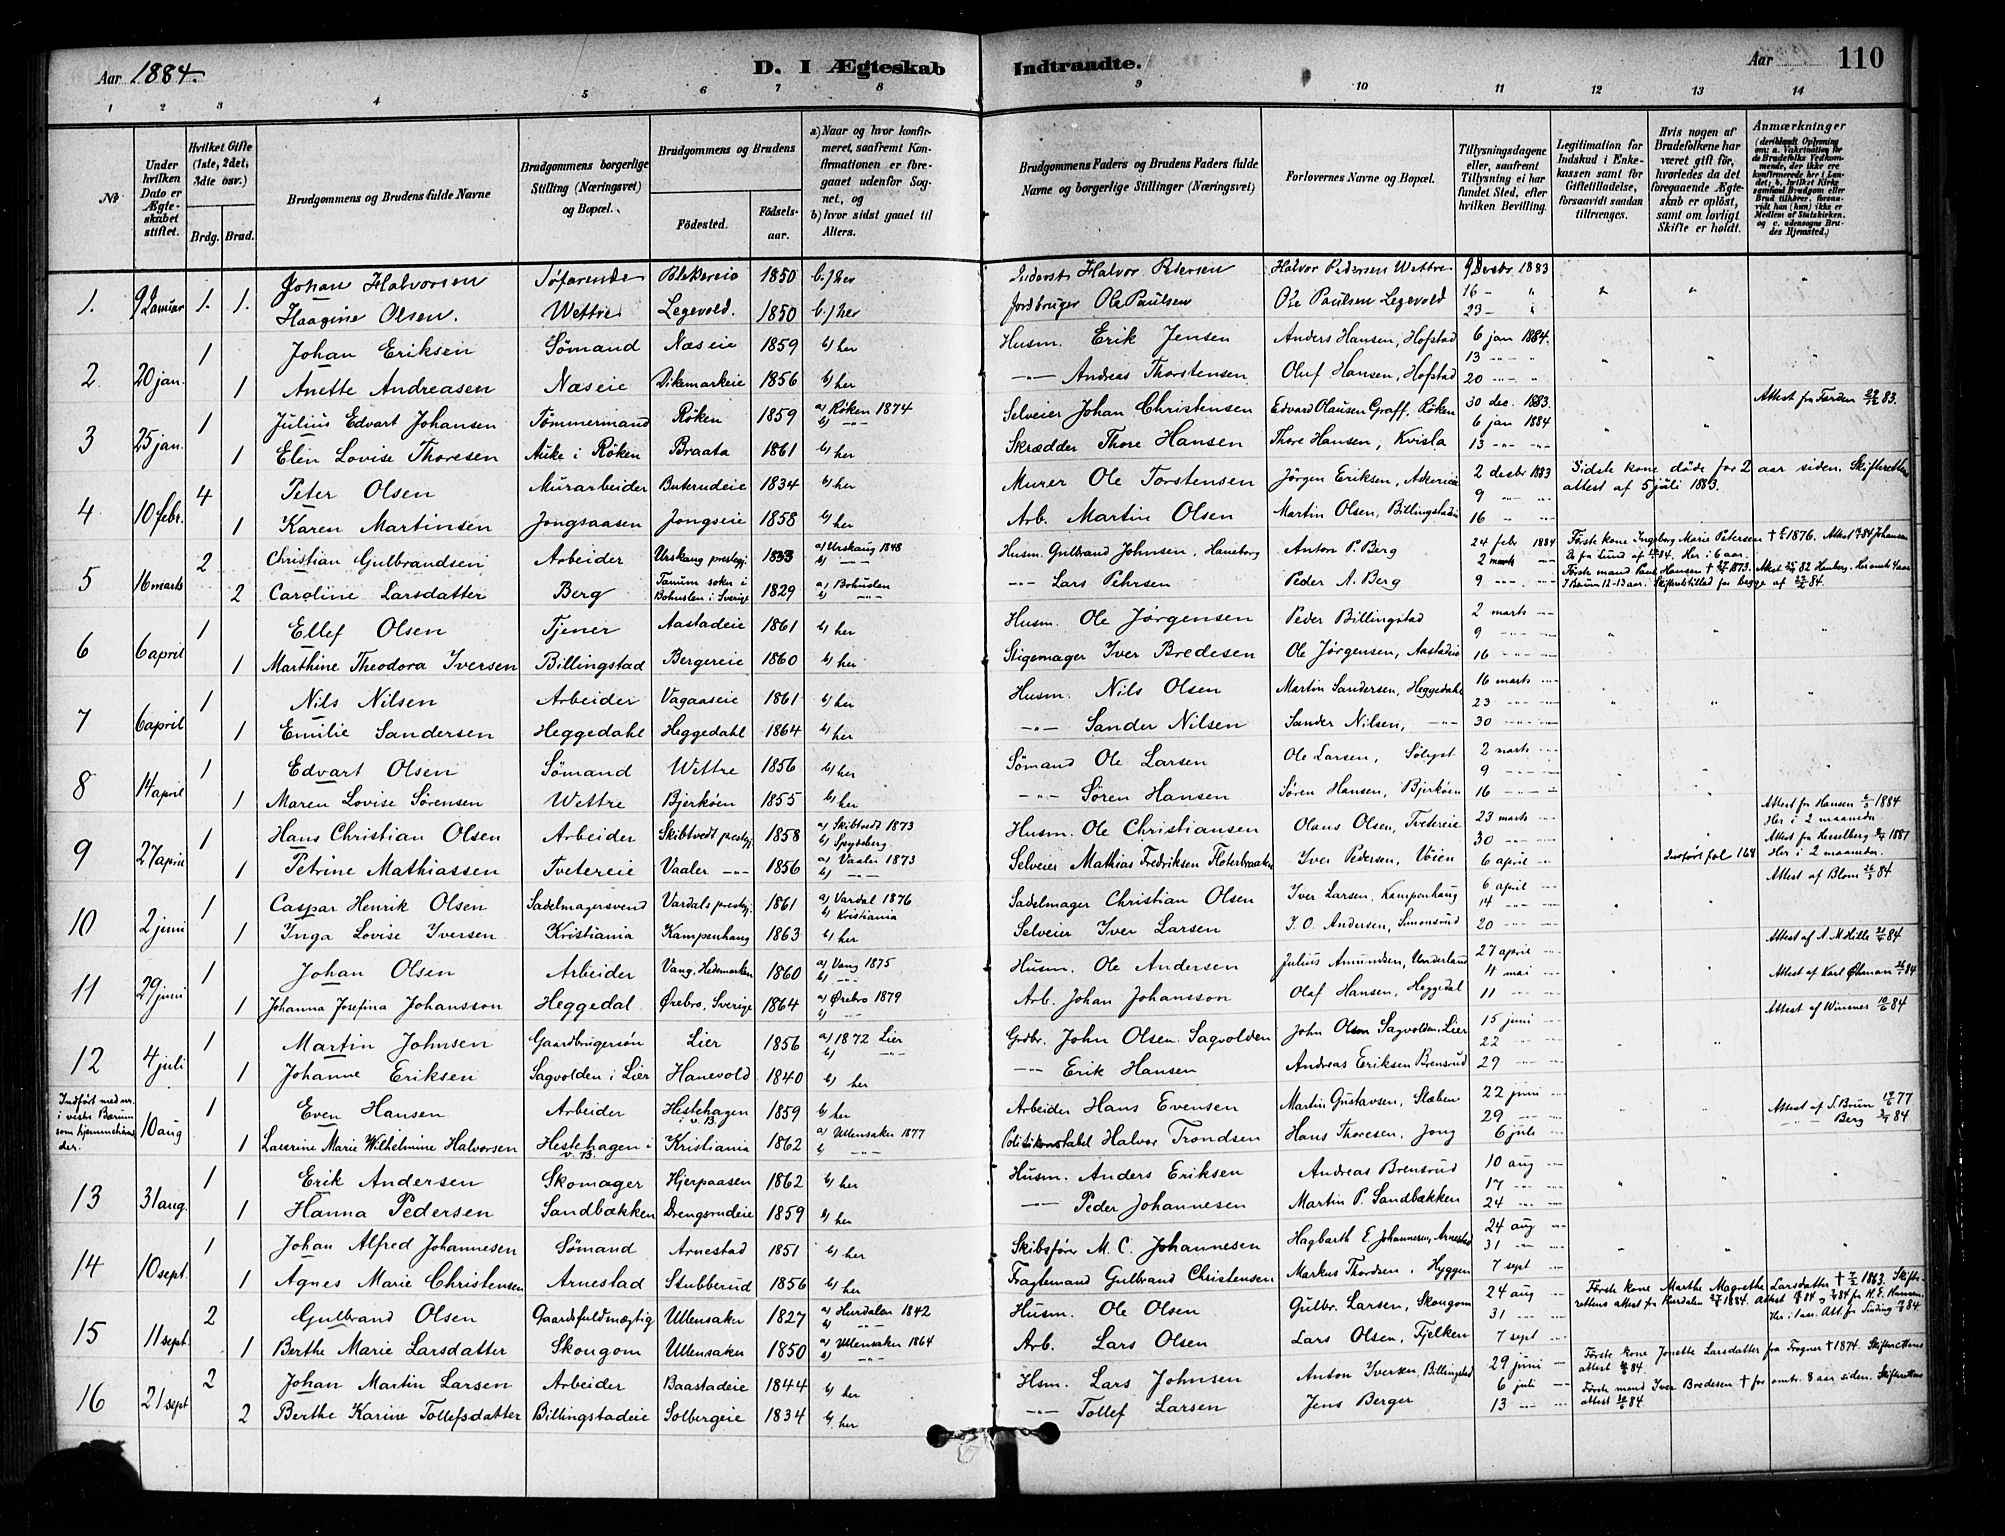 Aar 1884. D. I Ægteskab Indtraadte. Aar 110
1 2 3 4 5 6 7 8 9 10 11 12 13 14
№
Under hvilken Dato er Ægteskabet stiftet.
Hvilket Gifte (1ste, 2det, 3dte osv.)
Brdg. Brud.
Brudgommens og Brudens fulde Navne
Brudgommens borgerlige Stilling (Næringsvei) og Bopæl.
Brudgommens og Brudens
Fødested. Fødselsaar.
a) Naar og hvor konfirmeret, saafremt Konfirmationen er foregaaet udenfor Sognet, og b) hvor sidst gaaet til Alters.
Brudgommens Faders og Brudens Faders fulde Navne og borgerlige Stillinger (Næringsvei)
Forlovernes Navne og Bopæl.
Tillysningsdagene eller, saafremt Tillysning ei har fundet Sted, efter hvilken Bevilling.
Legitimation for Indskud i Enkekassen samt for Giftetilladelse, forsaavidt saadan tiltrænges.
Hvis nogen af Brudefolkene har været gift før, hvorledes da det foregaaende Ægteskab er opløst, samt om lovligt Skifte er holdt.
Anmærkninger (deriblandt Oplysning om: a. Vakcination for de Brudefolks Vedkommende, der ikke ere konfirmerede her i Landet; b. hvilket Kirkesamfund Brudgom eller Brud tilhører, forsaavidt han (hun) ikke er Medlem af Statskirken, og c. udensogns Brudes Hjemsted.)
1. 9 Januar 1. Johan Halvorsen Søfarende Blekereie 1850 b.) her Inderst Halvor Pedersen Halvor Pedersen Wettre 9 Decbr 1883
1. Haagine Olsen. Wettre Legevold. 1850 b.) her Jordbruger Ole Paulsen Ole Paulsen Legevold 16 – " 23 – "
2 20 jan. 1 Johan Eriksen Sømand Næseie 1859 b) her Husm. Erik Jensen Anders Hansen, Hofstad 6 jan 1884. 13
1 Anette Andreasen Næseie Dikemarkeie 1856 b) her –"– Andreas Thorstensen Oluf Hansen, Hofstad 20
3 25 jan. 1 Julius Edvart Johansen Tømmermand Røken 1859 a) Røken 1874 b) –"– Selveier Johan Christensen Edvard Olausen Graff, Røken 30 dec. 1883. 6 jan 1884
1 Elen Lovise Thoresen Auke i Røken Braata 1861 b) her Skrædder Thore Hansen Thore Hansen, Kvisla 13
4 10 febr. 4 Peter Olsen Murarbeider Buterudeie 1834 b) her Murer Ole Torstensen Jörgen Eriksen, Askereie 2 decbr 1883 9 Sidste kone døde for 2 aar siden. Skifterettens attest af 5 juli 1883.
1 Karen Martinsen Jongsaasen Jongseie 1858 b) her Arb. Martin Olsen Martin Olsen, Billingstadeie 16
5 16 marts 2 Christian Gulbrandsen Arbeider Urskaug prestegj. 1833 a) Urskaug 1848 b) –"– Husm. Gulbrand Johnsen, Hansborg Anton P. Berg 24 febr 1884 2 marts Første kone Ingeborg Marie Petersen † 1876. Her i 6 aar.
2 Caroline Larsdatter Berg Tanum sokn i Bohuslen i Sverige 1829 a) Bohuslen b) –"– –"– Lars Pehrsen Peder A. Berg 9 Første mand Paul Hansen † 1873. I Bærum 12-13 aar. Skifterets tillad for begge af
6 6 april 1 Ellef Olsen Tjener Aastadeie 1861 b) her Husm. Ole Jørgensen Peder Billingstad 2 marts 9
1 Marthine Theodora Iversen Billingstad Bergereie 1860 b) her Stigemager Iver Bredesen Ole Jørgensen, Aastadeie 16
7 6 april 1 Nils Nilsen Arbeider Vagaaseie 1861 b) her Husm. Nils Olsen Martin Sandersen, Heggedahl 16 marts 23
1 Emilie Sandersen Heggedahl Heggedahl 1864 b) her –"– Sander Nilsen Sander Nilsen, –"– 30
8 14 april 1 Edvart Olsen Sømand Wettre 1856 b) her Sømand Ole Larsen Ole Larsen, 2 marts 9
1 Maren Lovise Sørensen Wettre Bjerkøen 1855 b) her –"– Søren Hansen Søren Hansen, Bjerkøen 16
9 27 april 1 Hans Christian Olsen Arbeider Skibtvedt prestegj. 1858 a) Skibtvedt 1873 b) Spydeberg Husm. Ole Christiansen Olaus Olsen, Tvetereie 23 marts 30 Attest fr Hansen 1884 Her i 2 maaneder
1 Petrine Mathiassen Tvetereie Vaaler –"– 1856 a) Vaaler 1873 b) –"– Selveier Mathias Fredriksen Floterbraaten Iver Pedersen, Vöien 6 april Indført fol 168 Attest fra Hesselberg 1881 Her i 2 maaneder.
10 2 juni 1 Caspar Henrik Olsen Sadelmagersvend Vardals prestegj. 1861 a) Vardal 1876 b) Kristiania Sadelmager Christian Olsen Iver Larsen, Kampenhaug 6 april 14 Attest af Blom 84
1 Inga Lovise Iversen Kristiania Kampenhaug 1863 b) her Selveier Iver Larsen I. O. Andersen, Simonsrud 20
11 29 juni 1 Johan Olsen Arbeider Vang, Hedemarken 1860 a) Vang 1875 b) –"– Husm. Ole Andersen Julius Amundsen, Underland 27 april 4 mai Attest af A. M. Hille 84
1 Johanna Josefina Johansson Heggedal Ørebro, Sverige 1864 a) Ørebro 1879 b) –"– Arb. Johan Johansson Olaf Hansen, Heggedal 11 Attest af Karl Öhman 84
12 4 juli 1 Martin Johnsen Gaardbrugersøn Lier 1856 a) 1872 Lier b) –"– Grdbr. John Olsen Sagvolden John Olsen Sagvolden, Lier 15 juni 22 Attest af Winsnes 84
1 Johanne Eriksen Sagvolden i Lier Hanevold 1840 b) her –"– Erik Hansen Andreas Eriksen Brensrud 29
Indført med nr. i vestre Bærum som hjemmehørende der. 10 aug 1 Even Hansen Arbeider Hestehagen i v. B. 1859 b) her Arbeider Hans Evensen Martin Gustavsen, Slæben 22 juni 29 Attest af S. Brun 77 Berg 84
1 Laurine Marie Wilhelmine Halvorsen Hestehagen i v. B. Kristiania 1862 a) Ullensaker 1877 b) –"– Politikonstabel Halvor Trondsen Hans Thoresen, Jong 6 juli
13 31 aug. 1 Erik Andersen Skomager Hjerpaasen 1862 b) her Husm. Anders Eriksen Andreas Brensrud 10 aug 17
1 Hanna Pedersen Sandbækken Drengsrudeie 1859 b) her –"– Peder Johannesen Martin P. Sandbækken 24
14 10 sept. 1 Johan Alfred Johannesen Sømand Arnestad 1851 b) her Skibsfører M. C. Johannesen Hagbarth E. Johannesen, Arnestad 24 aug 31
1 Agnes Marie Christensen Arnestad Stubberud 1856 b) her Fragtemand Gulbrand Christensen Markus Thordsen, Hyggen 7 sept
15 11 sept 2 Gulbrand Olsen Gaardsfuldmægtig Ullensaker 1827 a) Hurdalen 1842 b) –"– Husm. Ole Olsen Gulbr. Larsen, Skougom 24 aug 31 Første kone Marthe Magrethe Larsdatter † 1863. Skifterettens attest fra Hurdalen 1884. Attest 84 fr H. E. Hansen. Her i 1 aar. Att. fr Sinding 84
1 Berthe Marie Larsdatter Skougom Ullensaker 1850 a) Ullensaker 1864 b) –"– Arb. Lars Olsen Lars Olsen, Tjelken 7 sept
16 21 sept 2 Johan Martin Larsen Arbeider Baastadeie 1844 b) her Hsm. Lars Johnsen Anton Iversen Billingstad 29 juni 6 juli Første kone Jonette Larsdatter fra Frogner † 1874. Skifterettens attest 84.
2 Berthe Karine Tollefsdatter Billingstadeie Solbergeie 1834 b) her –"– Tollef Larsen Jens Berger 13 Første mand Iver Bredesen † for omtr. 8 aar siden. Skifterettens attest 84